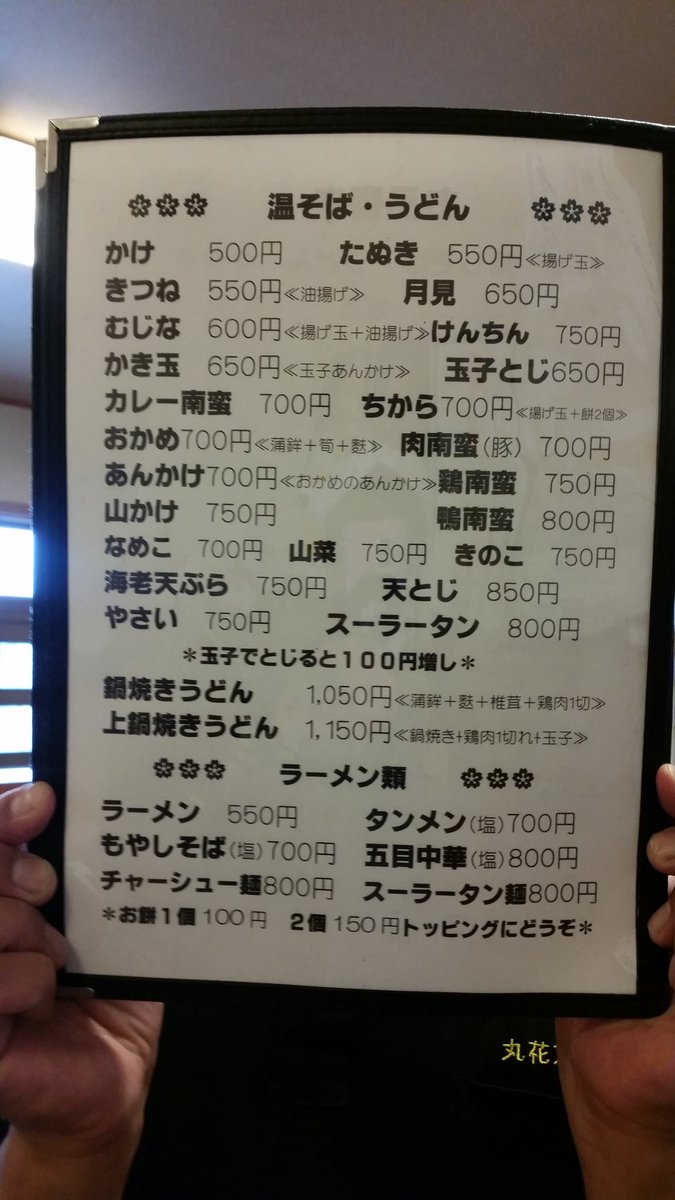 温そば・うどん
かけ 500円 たぬき 550円≪揚げ玉≫
きつね 550円≪油揚げ≫ 月見 650円
むじな 600円≪揚げ玉+油揚げ≫けんちん 750円
かき玉 650円≪玉子あんかけ≫ 玉子とじ650円
カレー南蛮 700円 ちから700円≪揚げ玉+餅2個≫
おかめ700円≪蒲鉾+筍+麩≫ 肉南蛮(豚) 700円
あんかけ700円≪おかめのあんかけ≫鶏南蛮 750円
山かけ 750円 鴨南蛮 800円
なめこ 700円 山菜 750円 きのこ 750円
海老天ぷら 750円 天とじ 850円
やさい 750円 スーラータン 800円
*玉子でとじると100円増し*
鍋焼きうどん 1,050円≪蒲鉾+麩+椎茸+鶏肉1切≫
上鍋焼きうどん 1,150円≪鍋焼き+鶏肉1切れ+玉子≫
ラーメン類
ラーメン 550円 タンメン(塩)700円
もやしそば(塩)700円 五目中華(塩)800円
チャーシュー麺800円 スーラータン麺800円
*お餅1個100円 2個150円トッピングにどうぞ*
丸花